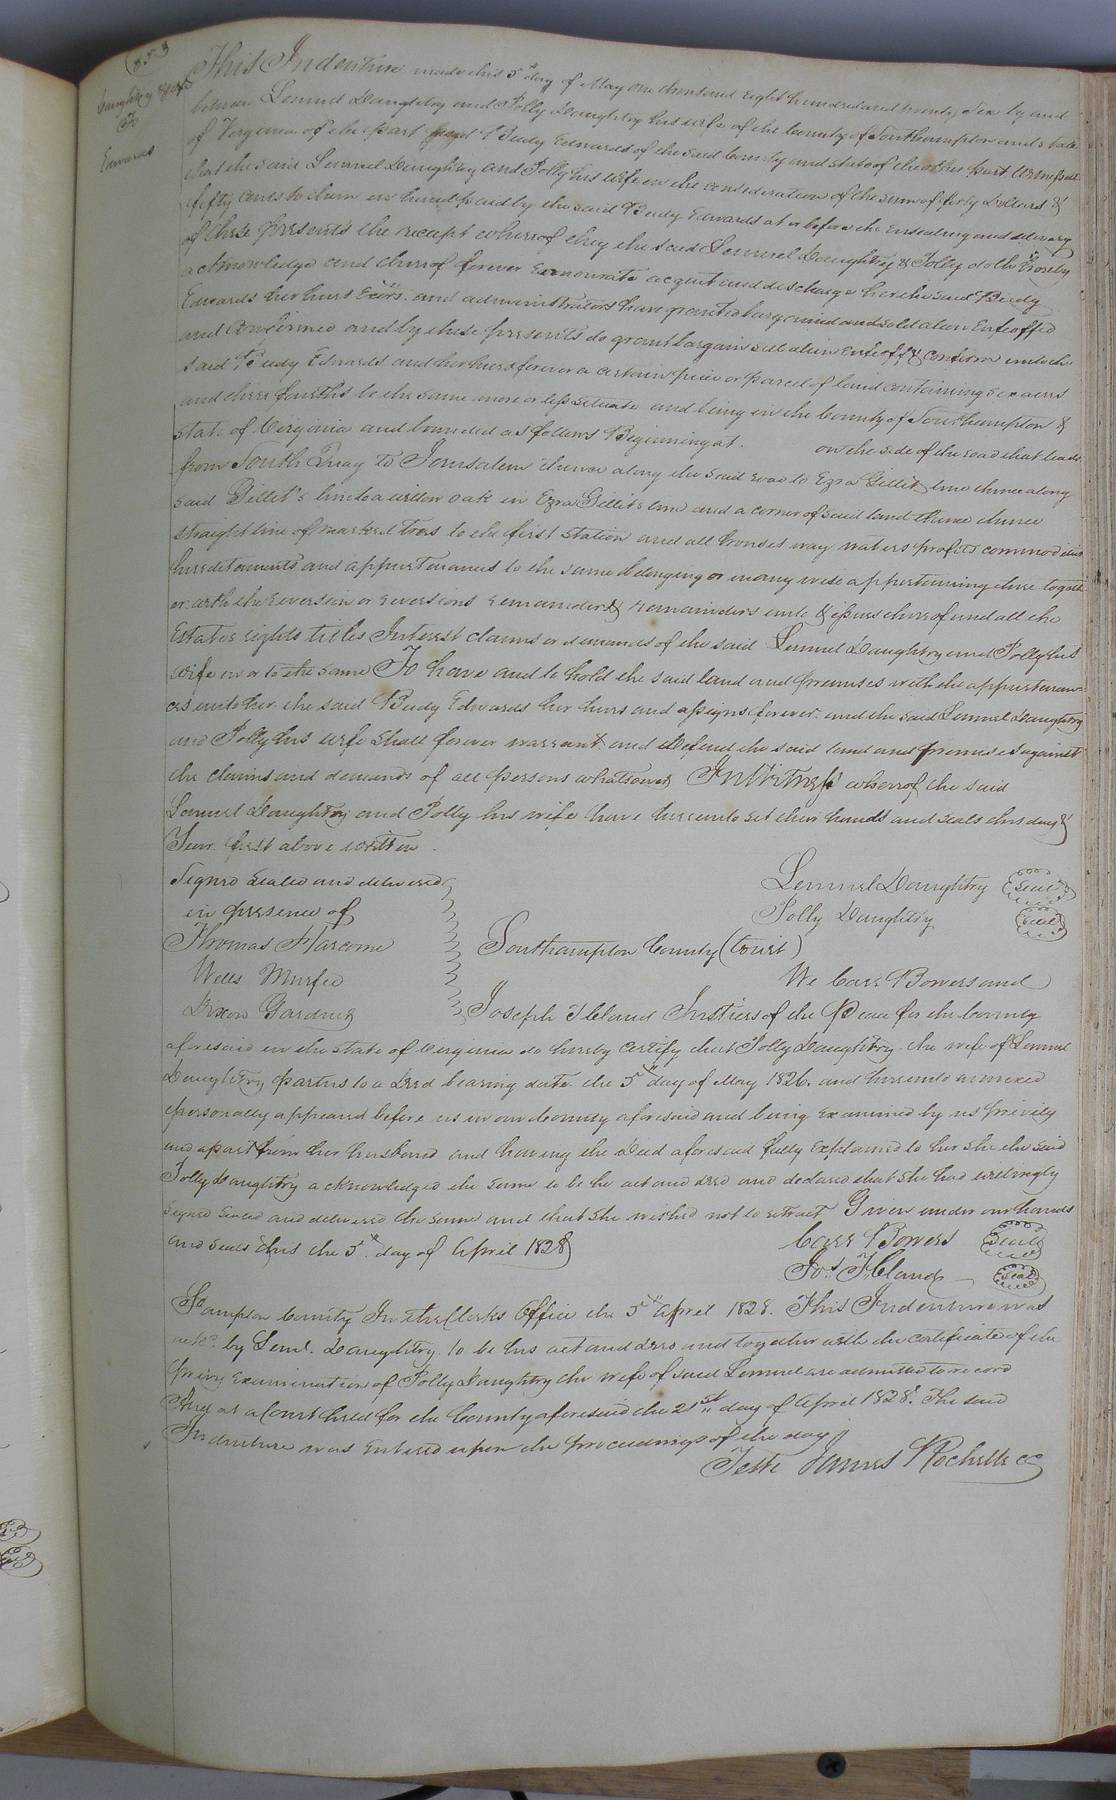 853
Daughtry & wife
To
Edwards
This Indenture made this 5th day of May one thousand Eight hundred and twenty Six by and
between Lemuel Daughtry and Polly Daughtry his wife of the County of Southampton and state
of Virginia of the part Budy Edwards of the said County and state of the other part Witnesseth
that the said Lemuel Daughtry and Polly his wife in the consideration of the sum of forty Dollars &
fifty cents to them in hand paid by the said Budy Edwards at or before the Ensealing and delivery
of these presents the receipt whereof they the said Lemuel Daughtry & Polly doth hereby
acknowledge and thereof forever Exonourate acquit and discharge her the said Budy
Edwards her heirs Exōrs. and administrators have granted bargained and sold alien Enfeoffed
and Confirmed and by these presents do grant bargain sell alien Enfeoff & confirm unto the
said Budy Edwards and her heirs forever a certain piece or parcel of land containing six acres
and three fourths be the same more or less situate and being in the County of Southampton &
state of Virginia and bounded as follows Beginning at on the side of the road that leads
from South Quay To Jerusalem thence along the said road to Ezra Gillets line thence along
said Gillet's line to a willow oak in Ezra Gillets line and a corner of said land thence
straight line of marked trees to the first station and all houses way waters profits commodities
hereditaments and appurtenances to the same belonging or in any wise appertaining thre togeth
er with the reversion or reversions remainder & remainders and all the
Estates rights titles Interest claims or demands of the said Lemuel Daughtry and Polly his
wife in or to the same To have and to hold the said land and premises with the appurtenan
ces unto her the said Budy Edwards her heirs and assigns forever. and the said Lemuel Daughtry
and Polly his wife Shall forever warrant and Defend the said land and premises against
the claims and demands of all persons whatsoever In Witness whereof the said
Lemuel Daughtry and Polly his wife have hereunto set their hands and seals this day &
Year first above written.
Signed Sealed and delivered
in presence of
Thomas Harcome
Wells Murfee
Dixon Gardner
Lemuel Daughtry Seal
Polly Daughtry Seal
Southampton County (Court)
We Carr Bowers and
Joseph T Cland Justices of the Peace for the County
aforesaid in the State of Virginia do hereby Certify that Polly Daughtry the wife of Lemuel
Daughtry parties to a Deed bearing date the 5th day of May 1826. and hereunto annexed
personally appeared before us in our County aforesaid and being Examined by us privily
and apart from her husband and having the Deed aforesaid fully Explained to her She the said
Polly Daughtry acknowledged the same to be he act and deed and declared that She had willingly
signed Sealed and delivered the same and that She wished not to retract Given under our hands
and Seals this the 5th day of April 1828
Carr Bowers Seal
Jos. T Cland Seal
Sõampton County In the Clerks Office the 5th April 1828. This Indenture was
ackd. by Leml. Daughtry to be his act and deed and together with the certificate of the
privy Examination of Polly Daughtry the wife of said Lemuel are admitted to record
And at a Court held for the County aforesaid the 21st day of April 1828. The said
Indenture was Entered upon the proceedings of the day
Teste James Rochelle cc